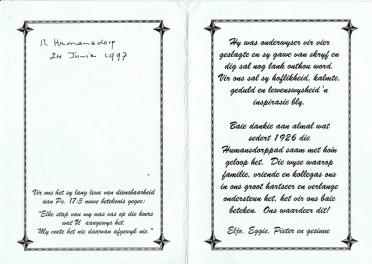 Humansdorp
24 Junie 1997
Vir ons het sy lang lewe van diensbaarheid
aan Ps. 17:5 nuwe betekenis gegee:
"Elke stap van my was vas op die koers
wat U aangewys het.
My voete het nie daarvan afgewyk nie."
Hy was onderwyser vir vier
geslagte en sy gawe van skryf en
dig sal nog lank onthou word.
Vir ons sal sy hoflikheid, kalmte,
geduld en lewenswysheid 'n
inspirasie bly.
Baie dankie aan almal wat
sedert 1926 die
Humansdorppad saam met hom
geloop het. Die wyse waarop
familie, vriende en kollegas ons
in ons groot hartseer en verlange
ondersteun het, het vir ons baie
beteken. Ons waardeer dit!
Eggie, Pieter en gesinne